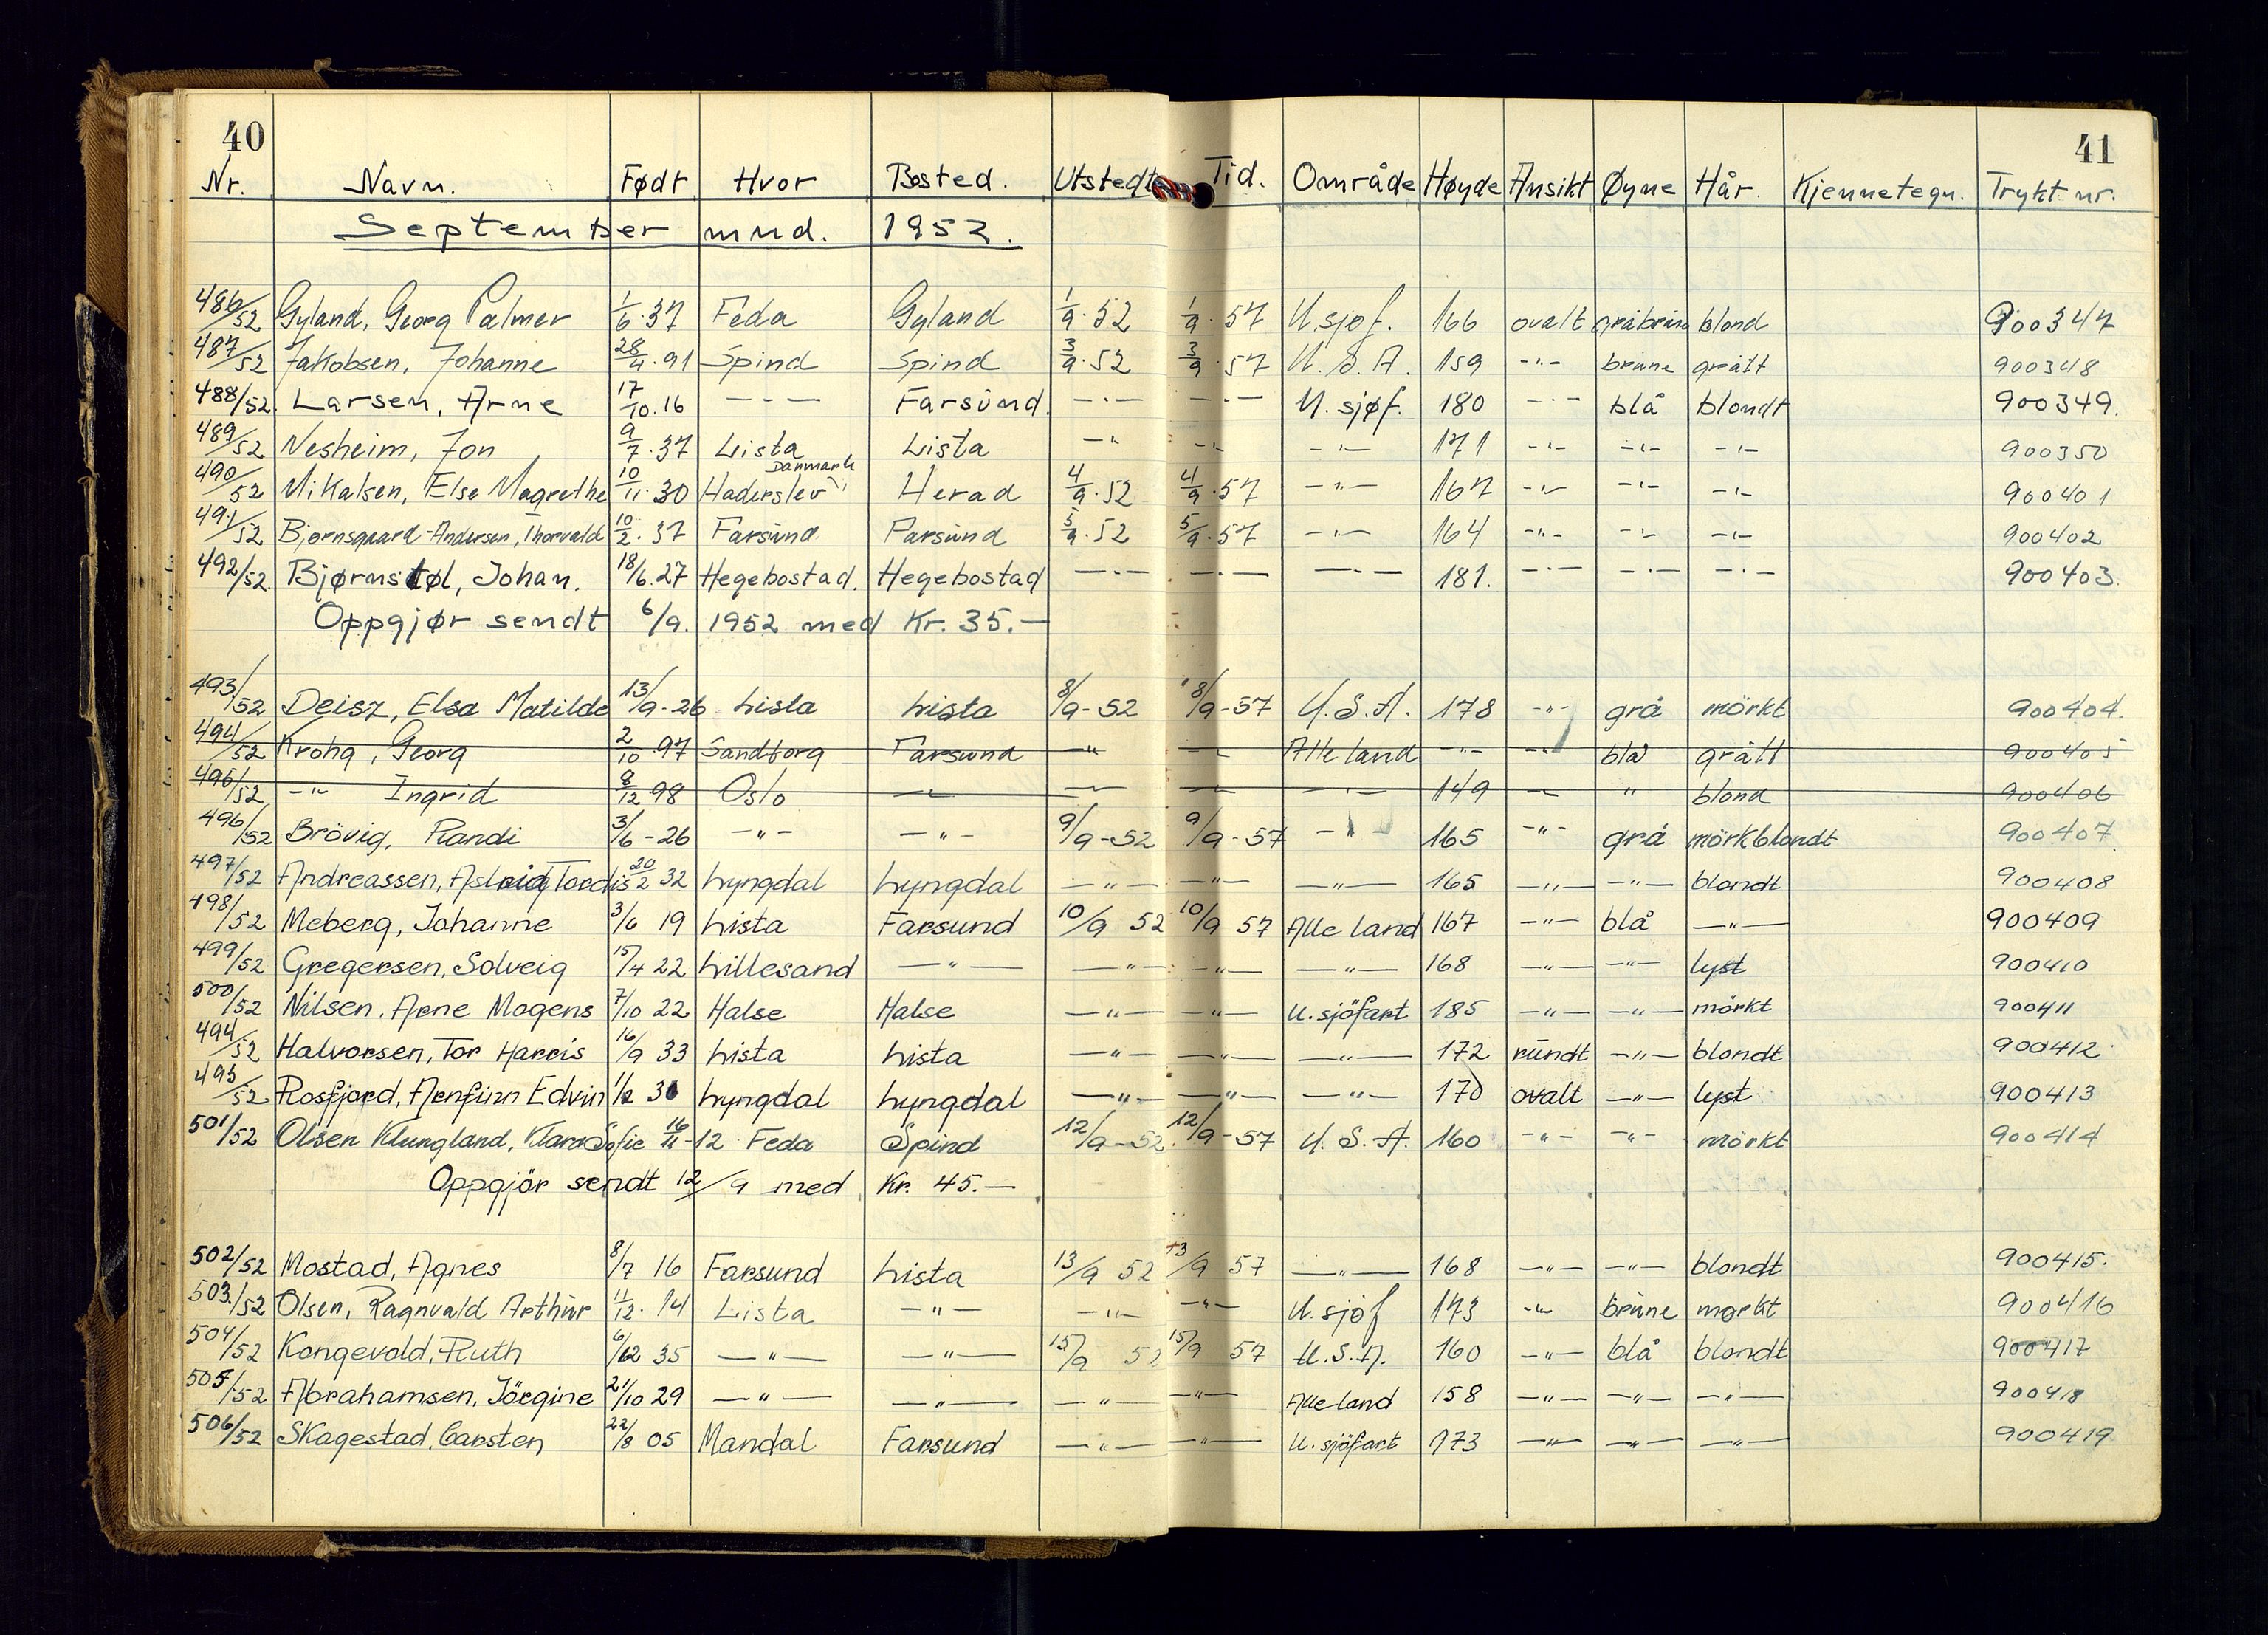 40 41
Nr. Navn. Født Hvor Bosted. Utstedt Tid. Område Høyde Ansikt Øyne Hår. Kjennetegn. Trykt nr.
September mnd. 1952.
486/52 Gyland, Georg Palmer 1/6.37 Feda Gyland 1/9.52 1/9.57 U.sjøf. 166 ovalt gråbrun blond 900347
487/52 Jakobsen, Johanne 28/4.91 Spind Spind 3/9.52 3/9.57 U.S.A. 159 -"- brune grått 900348
488/52. Larsen, Arne 17/10.16 -"- Farsund. -"- -"- U.sjøf. 180 -"- blå blondt 900349.
489/52 Nesheim, Jon 9/7.37 Lista Lista -"- -"- -"- 171 -"- -"- -"- 900350
490/52 Mikalsen, Else Magrethe 10/11.30 Haderslev Danmark Herad 4/9.52 4/9.57 -"- 167 -"- -"- -"- 900401
491/52 Bjørnsgaard-Andersen, Thorvald 10/2.37 Farsund Farsund 5/9.52 5/9.57 -"- 164 -"- -"- -"- 900402
492/52. Bjørnstøl, Johan. 18/6.27 Hegebostad. Hegebostad -"- -"- -"- 181. -"- -"- -"- 900403.
Oppgjør sendt 6/9. 1952 med Kr. 35.-
493/52 Deisz, Elsa Matilde 13/9-26 Lista Lista 8/9-52 8/9-57 U.S.A. 178 -"- grå mörkt 900404.
494/52 Krohg, Georg 2/10.97 Sandtorg Farsund -"- -"- Alle land -"- -"- blå grått 900405
495/52 -"- Ingrid 8/12 98 Oslo -"- -"- -"- -"- 149 -"- " blond 900406
496/52 Brövig, Randi 3/6-26 -"- -"- 9/9-52 9/9-57 -"- 165 -"- grå mörkblondt 900407
497/52 Andreassen, Astrid Tordis 20/2 32 Lyngdal Lyngdal -"- -"- -"- 165 -"- -"- blondt 900408
498/52 Meberg, Johanne 3/6 19 Lista Farsund 10/9 52 10/9 57 Alle land 167 -"- blå -"- 900409
499/52 Gregersen, Solveig 15/4 22 Lillesand -"- -"- -"- -"- 168 -"- -"- lyst 900410
500/52 Nilsen, Arne Mogens 7/10 22 Halse Halse -"- -"- U.sjöfart 185 -"- -"- mörkt 900411
494/52 Halvorsen, Tor Harris 16/9 33 Lista Lista -"- -"- -"- 172 rundt -"- blondt 900412
495/52 Rosfjord, Arnfinn Edvin 1/2 30 Lyngdal Lyngdal -"- -"- -"- 170 ovalt -"- lyst 900413
501/52 Olsen Klungland, Klara Sofie 16/11-12 Feda Spind 12/9-52. 12/9-57 U.S.A. 160 -"- -"- mörkt 900414
Oppgjör sendt 12/9 med Kr. 45.-
502/52 Mostad, Agnes 8/7 16 Farsund Lista 13/9 52 13/9 57 -"- 168 -"- -"- blondt 900415.
503/52 Olsen, Ragnvald Arthur 11/12.14 Lista -"- -"- -"- U.sjöf 173 -"- brune mørkt 900416
504/52 Kongevold, Ruth 6/12 35 -"- -"- 15/9 52 15/9 57 U.S.A. 160 -"- blå blondt 900417
505/52 Abrahamsen, Jörgine 21/10 29 -"- -"- -"- -"- Alle land 158 -"- -"- -"- 900418
506/52 Skagestad, Carsten 22/8 05 Mandal Farsund -"- -"- U.sjöfart 173 -"- -"- -"- 900419